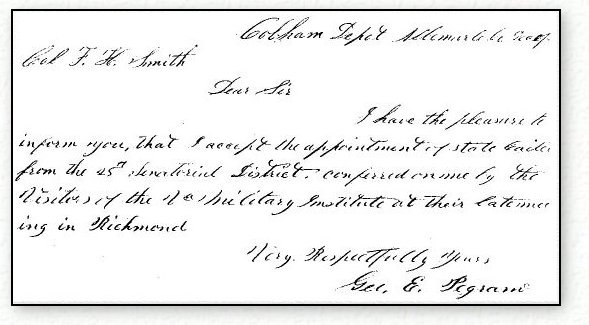 Cobham Depot Albemarle Co
Col F. H. Smith
Dear Sir
I have the pleasure to
inform you, that I accept the appointment of state Cadet
from the 25th Senatorial District, conferred on me by the
Visitors of the Va Military Institute at their late meet
ing in Richmond
Very Respectfully Yours
Geo. E. Pegram